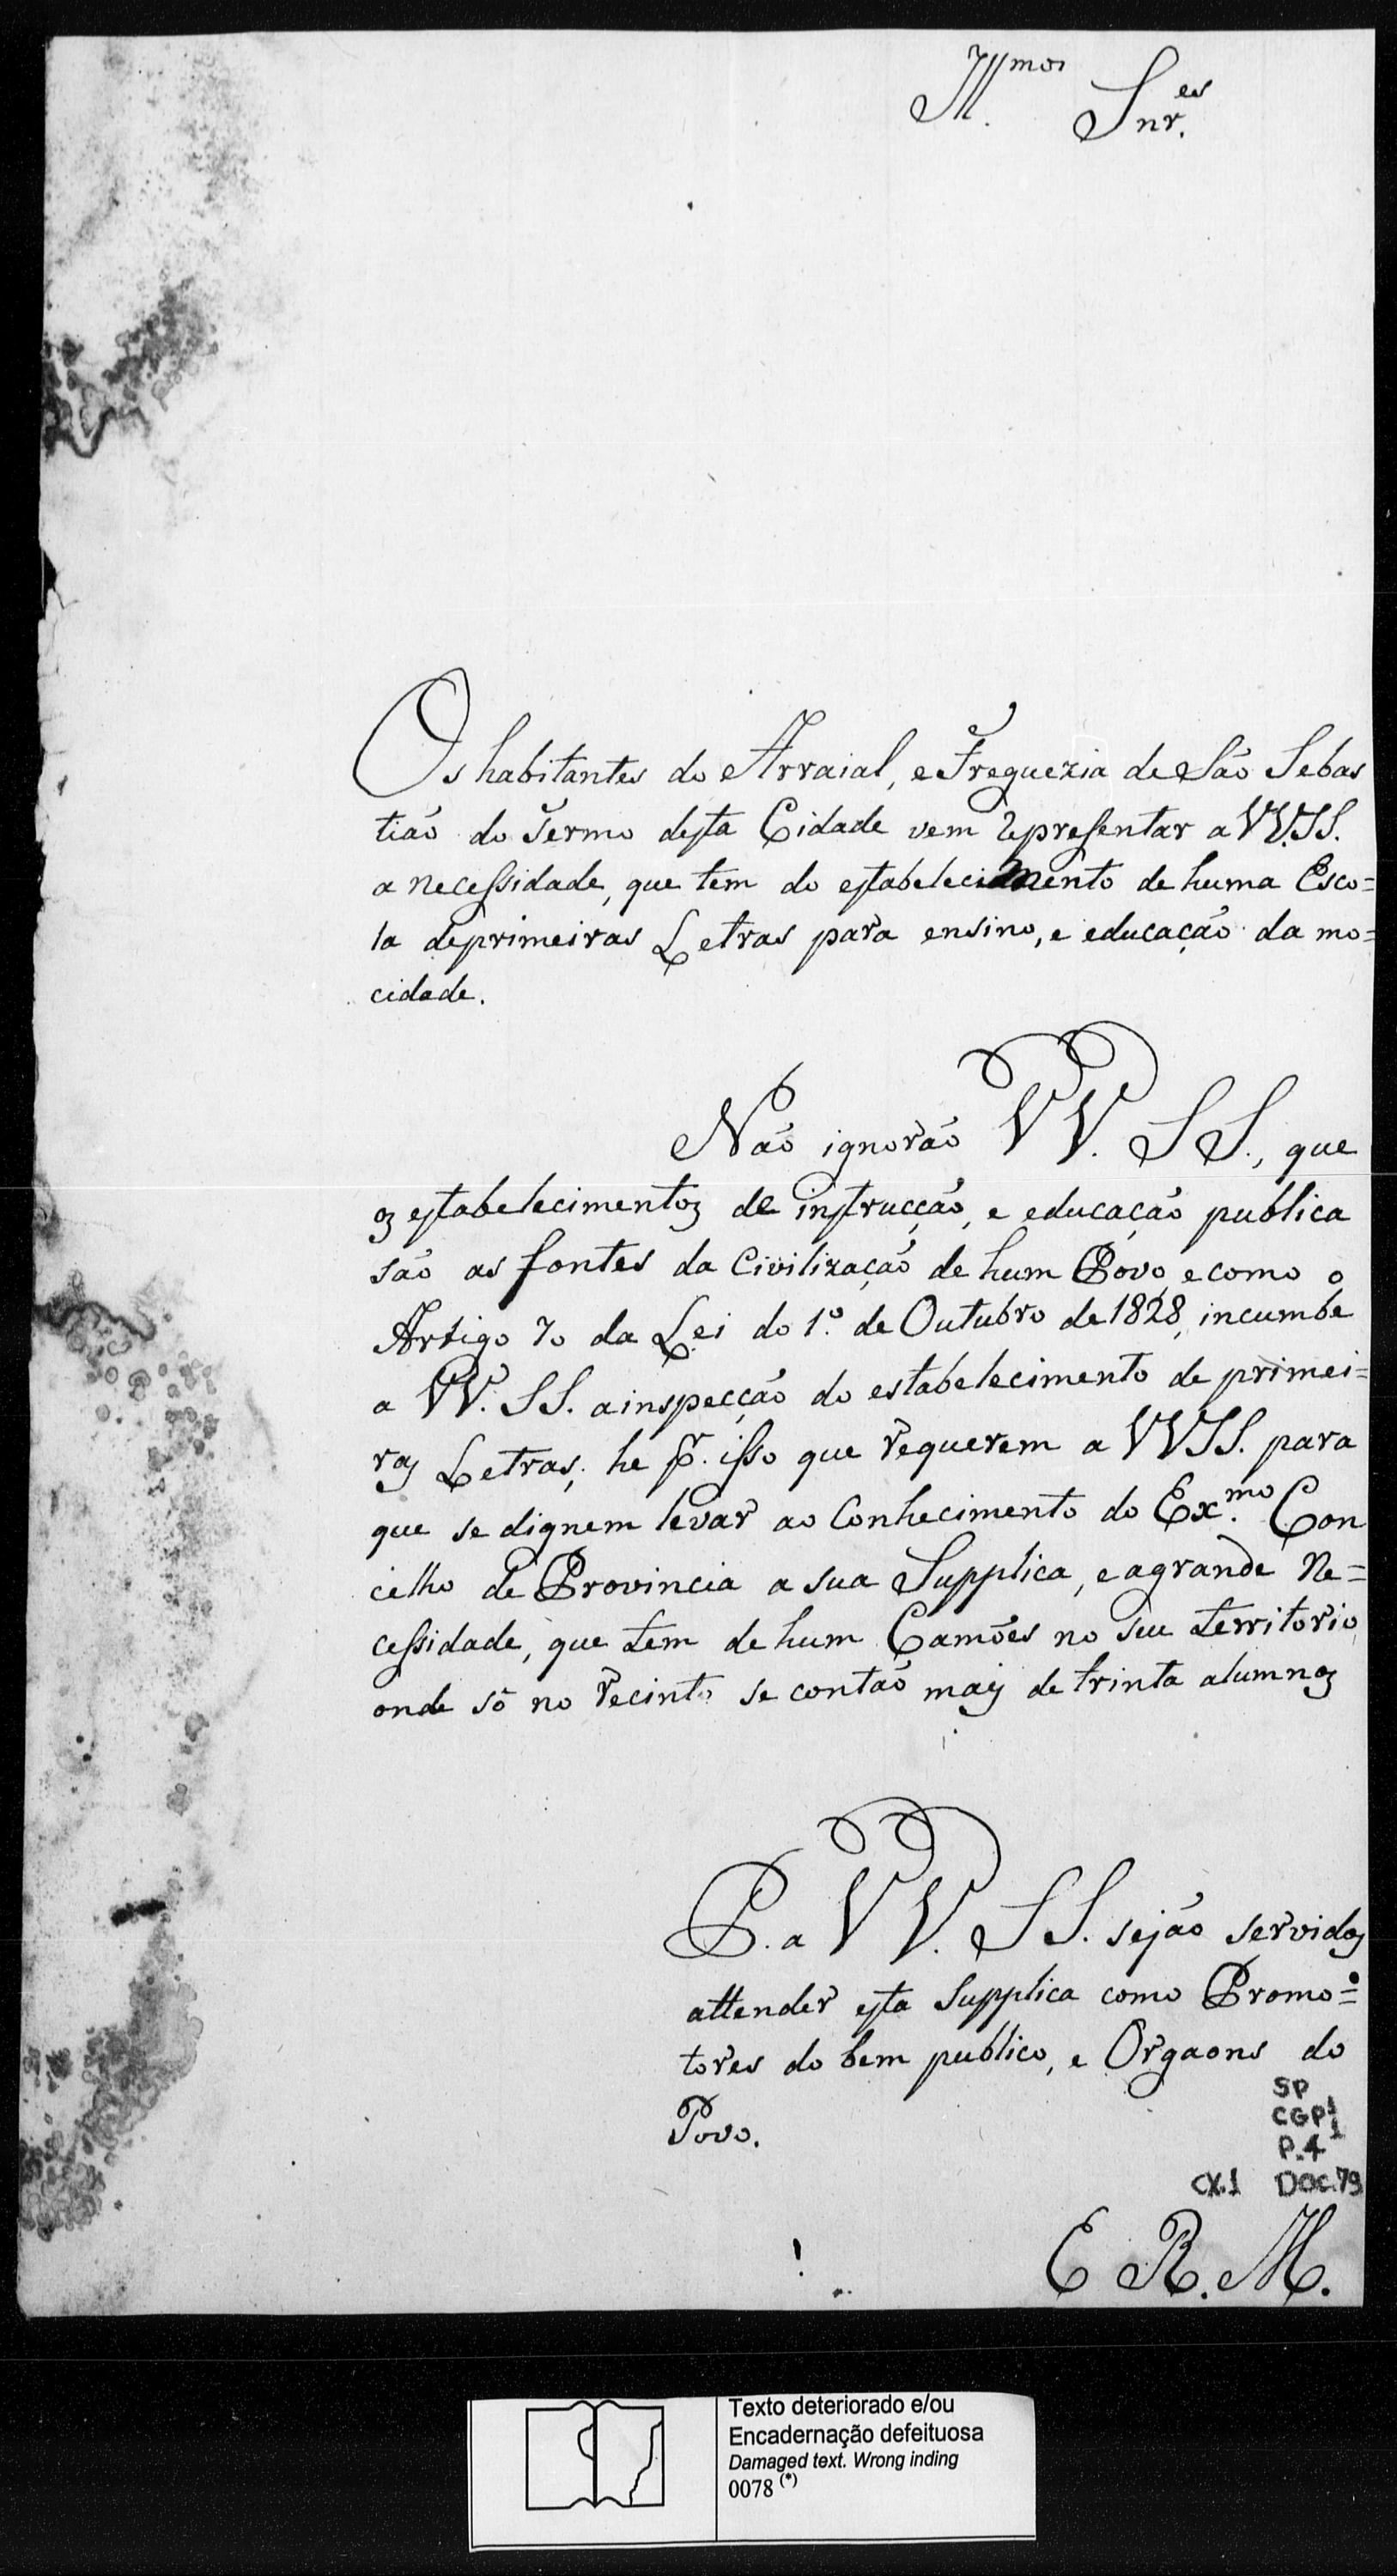 Illmos Snres.
Os habitantes do Arraial, e Freguezia de São Sebas
tião do Termo desta Cidade vem representar a VV.SS.
a necessidade, que tem do estabelecimento de huma Esco=
la de primeiras Letras para ensino, e educação da mo=
cidade.
Não ignorão VV. SS., que
os estabelecimentos de instrucção, e educação publica
são as fontes da Civilização de hum Povo, e como o
Artigo 70 da Lei do 1º. de Outubro de 1828, incumbe
a VV. SS. a inspecção do estabelecimento de primei=
ras Letras; he pr. isso que requerem a VVSS. para
que se dignem levar ao Conhecimento do Exmo. Con
celho de Provincia a sua Supplica, e a grande Ne=
cessidade, que tem de hum Camões no seu territorio,
onde só no recinto se contão mais de trinta alumnos
P. a VV. SS. sejão servidos
attender esta Supplica como Promo=
tores do bem publico, e Orgaons do
Povo.
SP
CGP1
P.4
CX.1 DOC.79
E R. M.
Texto deteriorado e/ou
Encadernação defeituosa
Damaged text. Wrong inding
0078 (*)